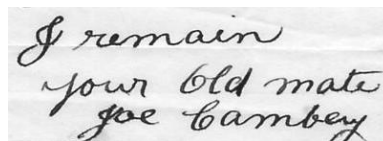 I remain
your Old mate
Joe Cambey